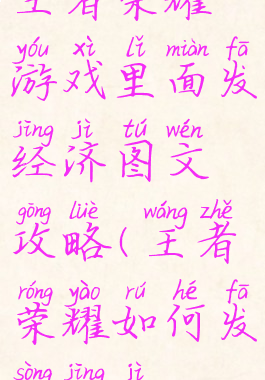 王者荣耀
yóu xì lǐ miàn fā
游戏里面发
jīng jì tú wén
经济图文
gōng lüè wáng zhě
攻略(王者
róng yào rú hé fā
荣耀如何发
sòng jīng jì